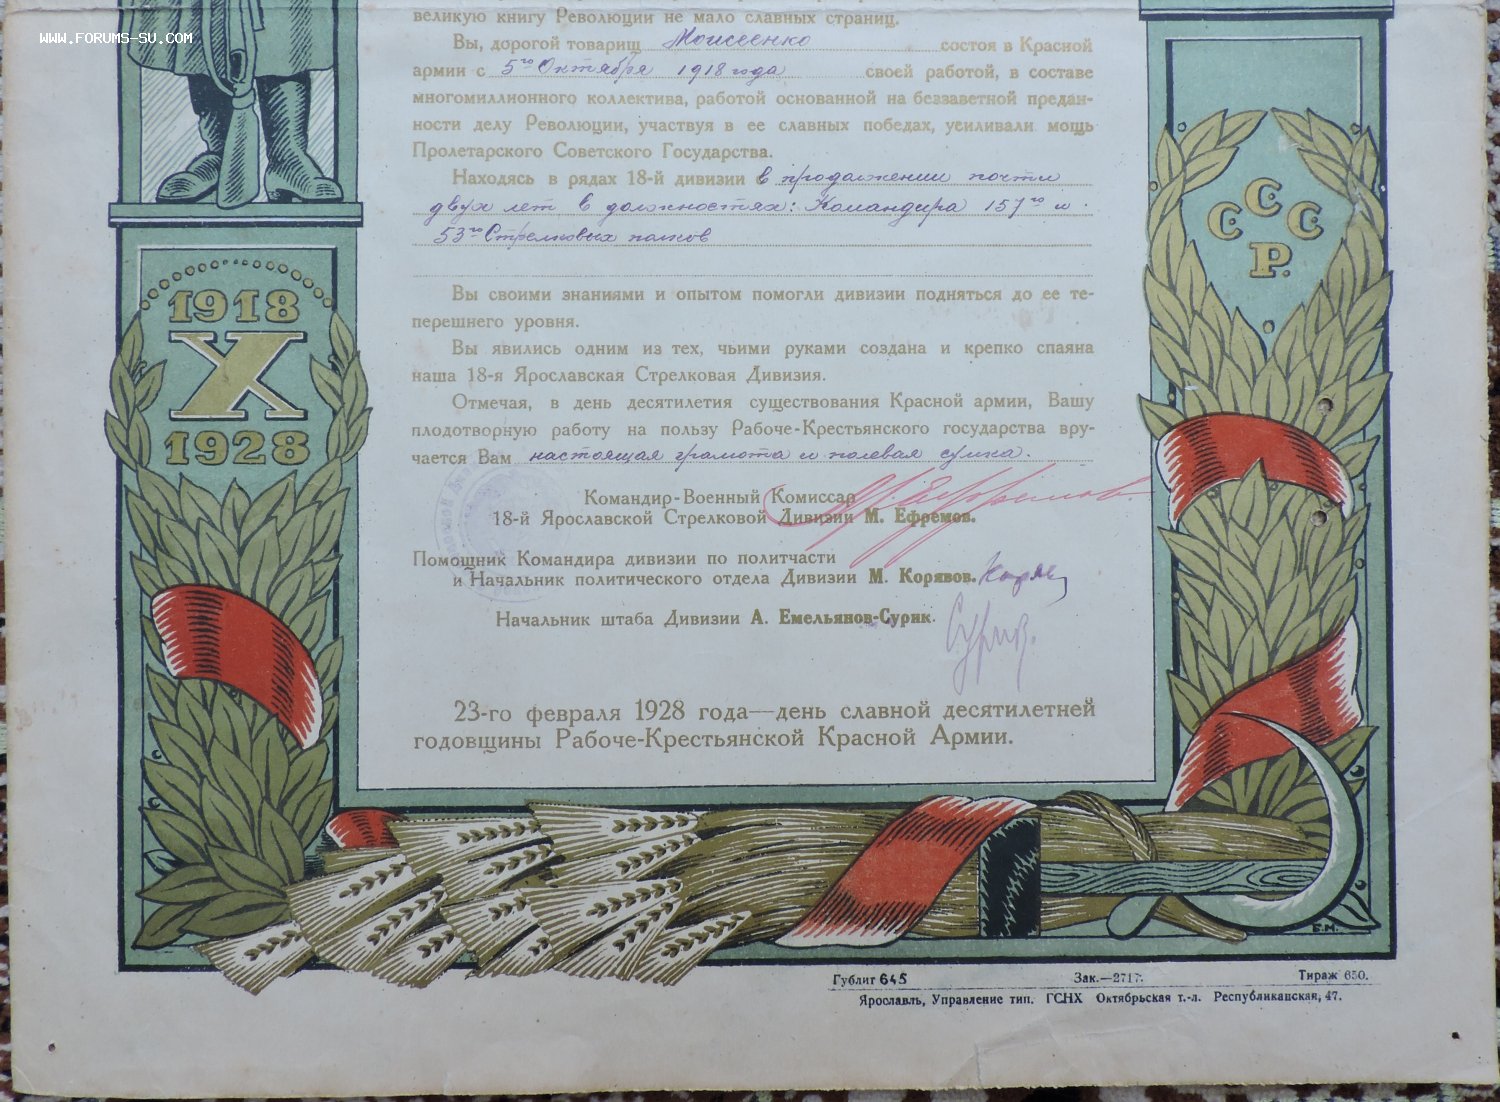 WWW.FORUMS-SU.COM
великую книгу Революции не мало славных страниц.
Вы, дорогой товарищ Моисеенко состоя в Красной
армии с 5го Октября 1918 года своей работой, в составе
многомиллионного коллектива, работой основанной на беззаветной предан-
ности делу Революции, участвуя в ее славных победах, усиливали мощь
Пролетарского Советского Государства.
Находясь в рядах 18-й дивизии в продолжении почти
двух лет в должностях: Командира 157го и
53го Стрелковых полков
Вы своими знаниями и опытом помогли дивизии подняться до ее те-
перешнего уровня.
Вы явились одним из тех, чьими руками создана и крепко спаяна
наша 18-я Ярославская Стрелковая Дивизия.
Отмечая, в день десятилетия существования Красной армии, Вашу
плодотворную работу на пользу Рабоче-Крестьянского государства вру-
чается Вам настоящая грамота и полевая сумка.
Командир-Военный Комиссар
18-й Ярославской Стрелковой Дивизии М. Ефремов.
Помощник Командира дивизии по политчасти
и Начальник политического отдела Дивизии М. Корявов.
Начальник штаба Дивизии А. Емельянов-Сурик.
Сурик.
23-го февраля 1928 года—день славной десятилетней
годовщины Рабоче-Крестьянской Красной Армии.
1918
X
1928
СССР.
Е.М.
Гублит 645 Зак.—2717. Тираж 650.
Ярославль, Управление тип. ГСНХ Октябрьская т.-л. Республиканская, 47.